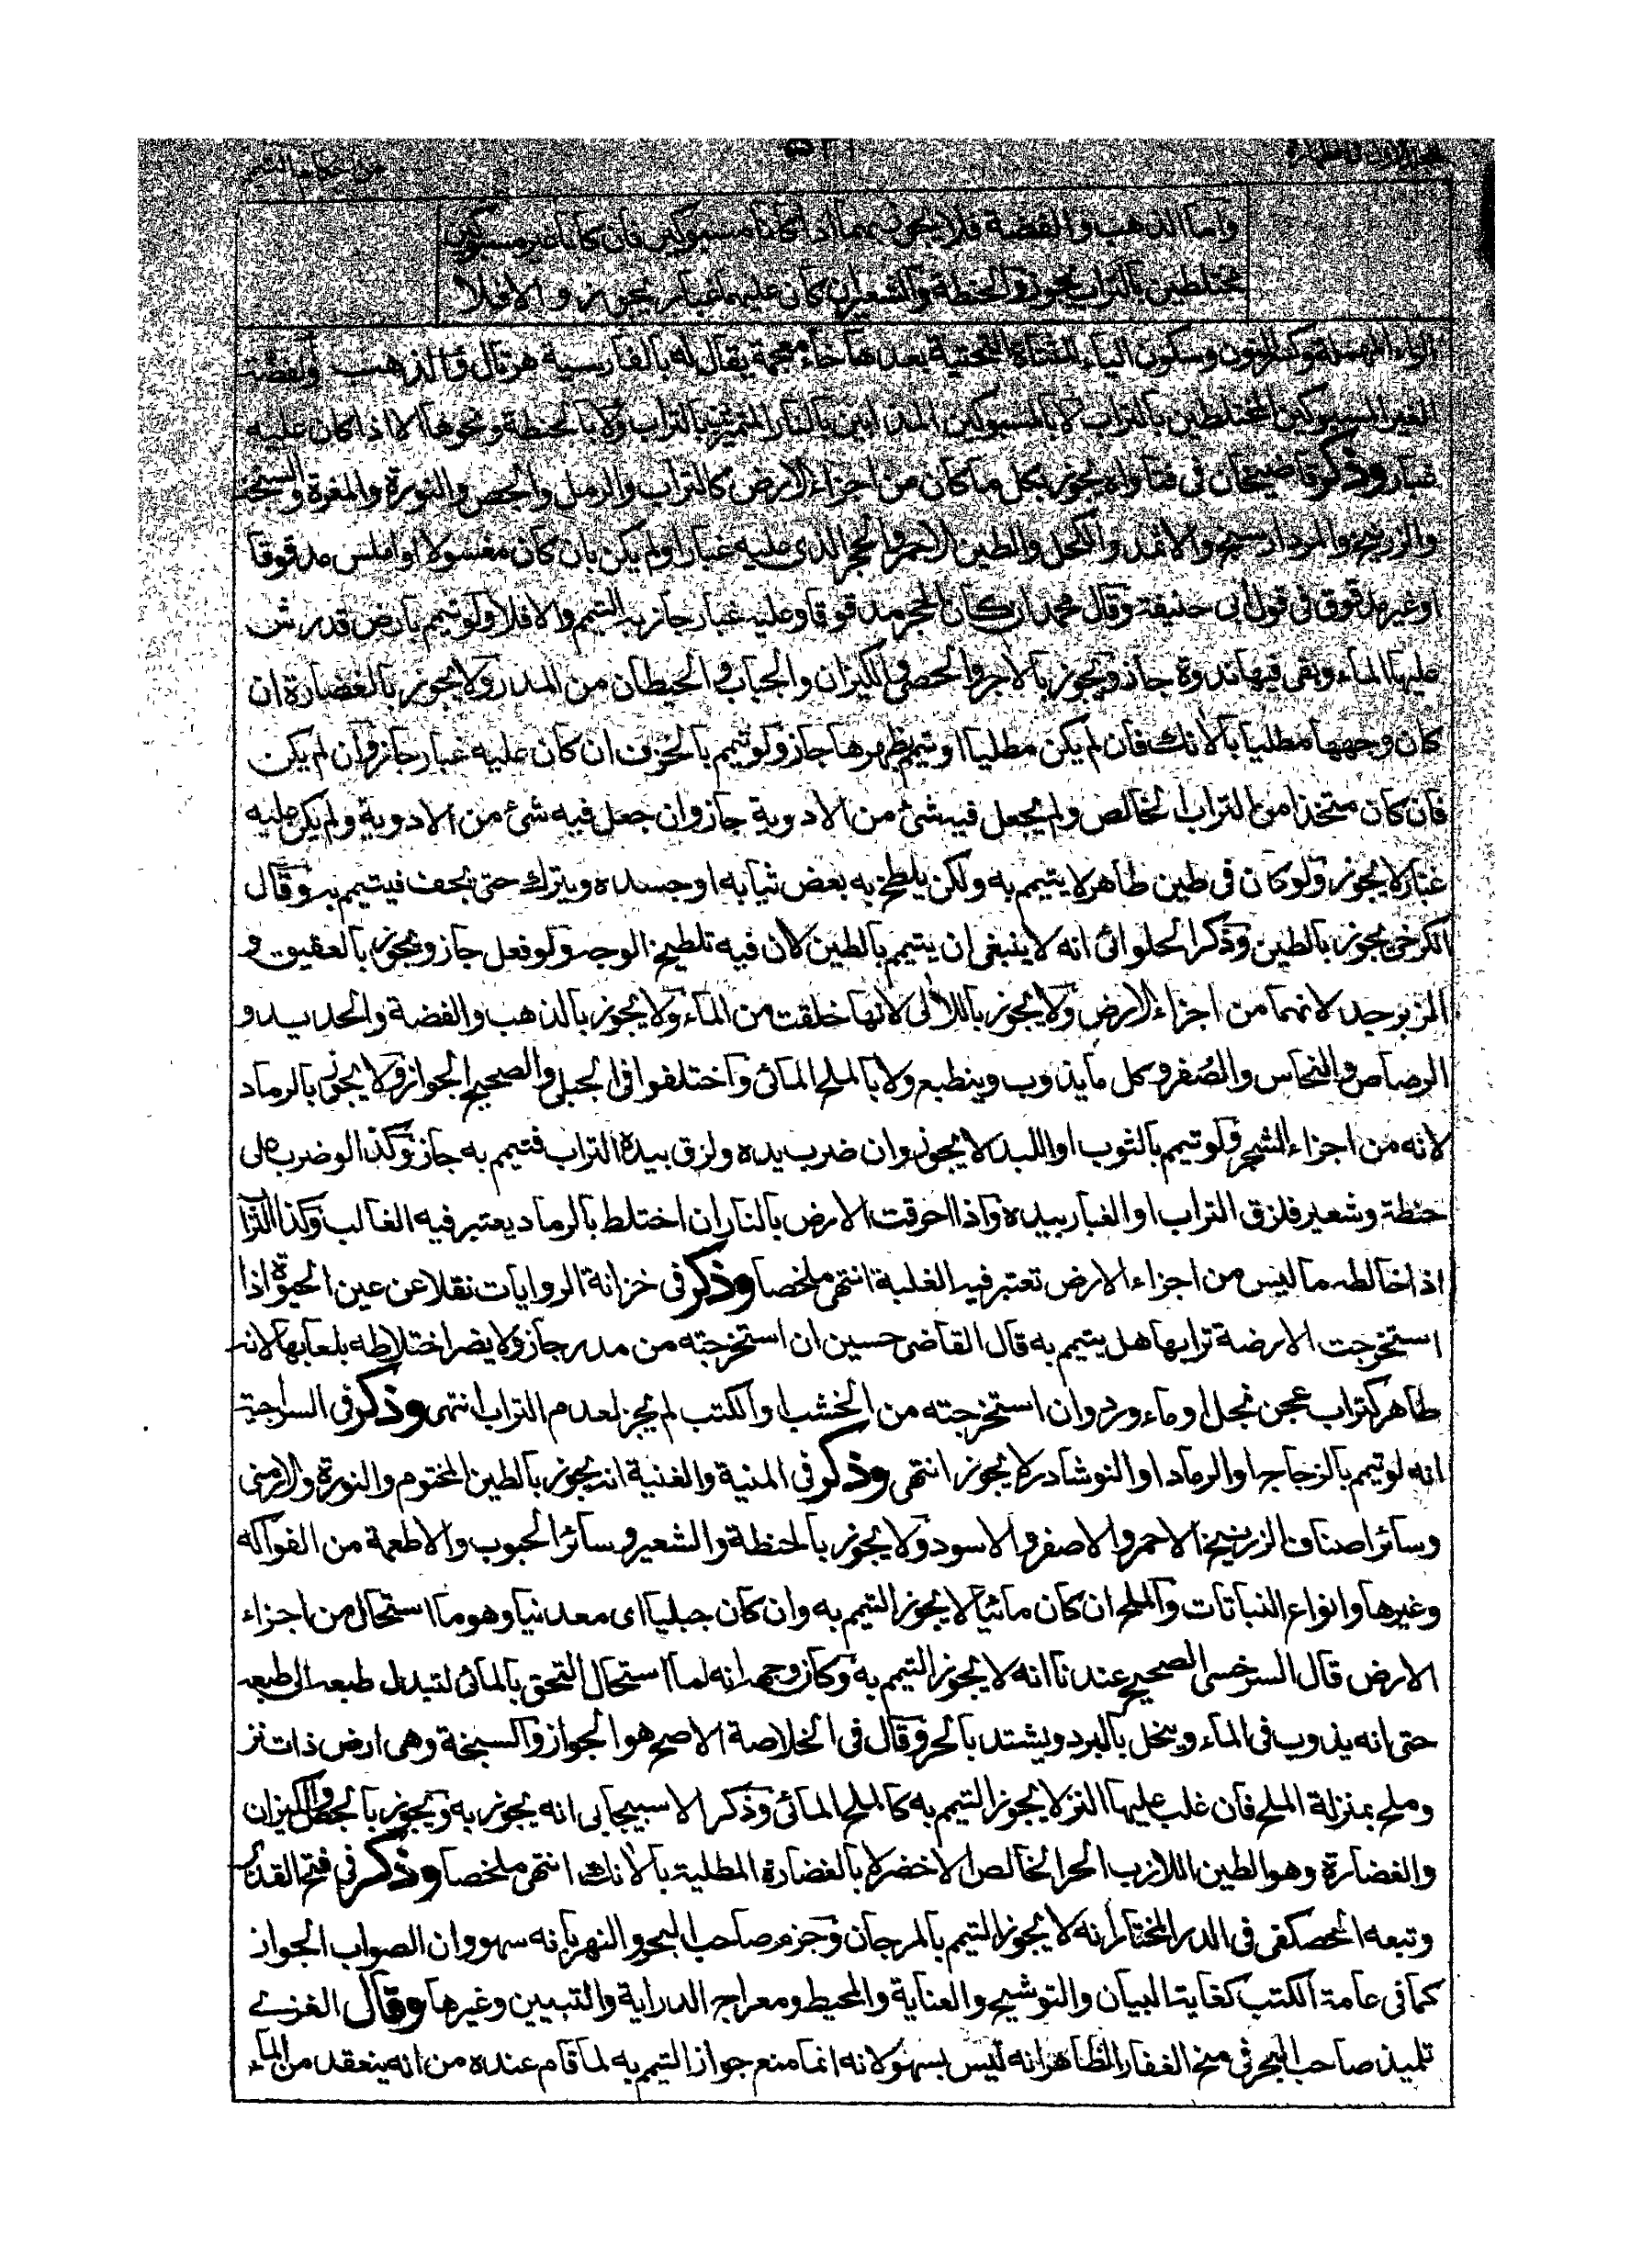 واما الذهب والفضة فلا يجوز بهما اذا كانا مسبوكين فان كانا غير مسبوكين
مختلطين بالتراب يجوز والحنطة والشعير ان كان عليهما غبار يجوز والا فلا
الراء المهملة وكسر النون وسكون الياء المثناة التحتية بعدها خاء معجمة يقال له بالفارسية هرتال والذهب والفضة
الغير المسبوكين المختلطين بالتراب لا بالمسبوكين المذابين بالنار المتميزين بالتراب ولا بالحنطة ونحوها الا اذا كان عليه
غبار وذكر قاضيخان في فتاواه يجوز بكل ما كان من اجزاء الارض كالتراب والرمل والجص والنورة والمغرة والسبخة
والزرنيخ والمرداسنج والاثمد والكحل والطين الاحمر والحجر الذي عليه غبار اولم يكن بان كان مغسولا او املس مدقوقا
اوغير مدقوق في قول ابى حنيفة وقال محمد ان كان الحجر مدقوقا وعليه غبار جاز به التيمم والا فلا ولو تيمم بارض قد رش
عليها الماء وبقى فيها ندوة جاز ويجوز بالاجر والحصى والكيزان والجباب والحيطان من المدر ولا يجوز بالغضارة ان
كان وجهها مطليا بالانك فان لم يكن مطليا او تيمم بظهرها جاز ولو تيمم بالخزف ان كان عليه غبار جاز وان لم يكن
فان كان متخذا من التراب الخالص ولم يجعل فيه شئ من الادوية جاز وان جعل فيه شئ من الادوية ولم يكن عليه
غبار لا يجوز ولو كان في طين طاهر لا يتيمم به ولكن يلطخ به بعض ثيابه او جسده ويترك حتى يجف فيتيمم به وقال
الكرخى يجوز بالطين وذكر الحلوائى انه لا ينبغى ان يتيمم بالطين لان فيه تلطيخ الوجه ولو فعل جاز ويجوز بالعقيق و
الزبرجد لانهما من اجزاء الارض ولا يجوز باللآلى لانها خلقت من الماء ولا يجوز بالذهب والفضة والحديد و
الرصاص والنحاس والصفر وكل ما يذوب وينطبع ولا بالملح المائى واختلفوا فى الجبلى والصحيح الجواز ولا يجوز بالرماد
لانه من اجزاء الشجر ولو تيمم بالثوب او اللبد لا يجوز وان ضرب يده ولزق بيده التراب فتيمم به جاز وكذا لو ضرب على
حنطة وشعير فلزق التراب او الغبار بيده واذا احرقت الارض بالنار ان اختلط بالرماد يعتبر فيه الغالب وكذا التراب
اذا خالطه ما ليس من اجزاء الارض تعتبر فيه الغلبة انتهى ملخصا وذكر فى خزانة الروايات نقلا عن عين الحيوة اذا
استخرجت الارضة ترابها هل يتيمم به قال القاضى حسين ان استخرجته من مدر جاز ولا يضر اختلاطه بلعابها لانه
طاهر كتراب عجن بخل او ماء ورد وان استخرجته من الخشب او الكتب لم يجز لعدم التراب انتهى وذكر فى السراجية
انه لو تيمم بالزجاج او الرماد او النوشادر لا يجوز انتهى وذكر فى المنية والغنية انه يجوز بالطين المختوم والنورة والارمنى
وسائر اصناف الزرنيخ الاحمر والاصفر والاسود ولا يجوز بالحنطة والشعير وسائر الحبوب والاطعمة من الفواكه
وغيرها وانواع النباتات والملح ان كان مائيا لا يجوز التيمم به وان كان جبليا اى معدنيا وهو ما استحال من اجزاء
الارض قال السرخسى الصحيح عندنا انه لا يجوز التيمم به وكان وجهه انه لما استحال التحق بالمائى لتبدل طبعه الى طبعه
حتى انه يذوب فى الماء وينحل بالبرد ويشتد بالحر وقال فى الخلاصة الاصح هو الجواز والسبخة وهى ارض ذات نز
وملح بمنزلة الملح فان غلب عليها النز لا يجوز التيمم به كالملح المائى وذكر الاسبيجابى انه يجوز به ويجوز بالجص والكيزان
والغضارة وهو الطين اللازب الحر الخالص الاخضر لا بالغضارة المطلية بالانك انتهى ملخصا وذكر فى فتح القدير
وتبعه الحصكفى فى الدر المختار انه لا يجوز التيمم بالمرجان وجزم صاحب البحر والنهر بانه سهو وان الصواب الجواز
كما فى عامة الكتب كغاية البيان والتوشيح والعناية والمحيط ومعراج الدراية والتبيين وغيرها وقال الغزى
تلميذ صاحب البحر فى منح الغفار الظاهر انه ليس بسهو لانه انما منع جواز التيمم به لما قام عنده من انه ينعقد من الماء